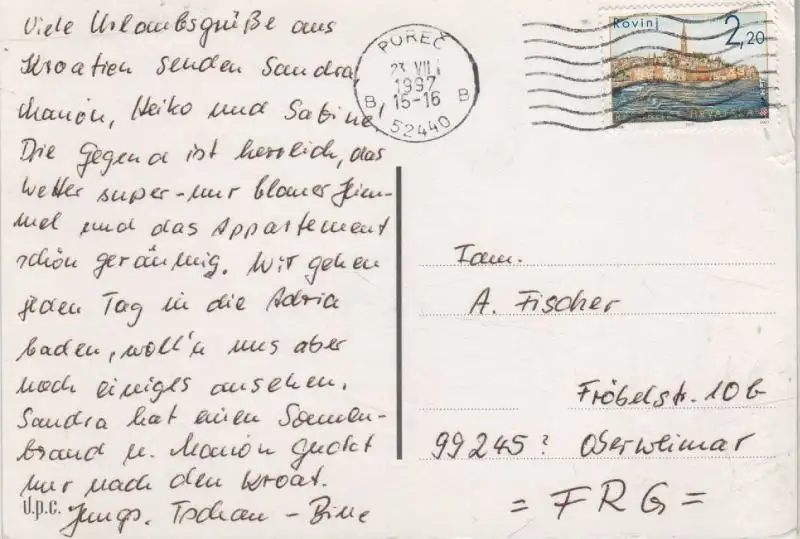 Viele Urlaubsgrüße aus
Kroatien senden Sandra,
Marion, Heiko und Sabine,
Die Gegend ist herrlich, das
Wetter super-nur blauer Him-
mel und das Appartement
schön geräumig. Wir gehen
jeden Tag in die Adria
baden, woll'n uns aber
noch einiges ansehen.
Sandra hat einen Sonnen-
brand u. Marion guckt
nur nach den kroat.
Jungs. Tschau - Bine
U.p.c.
POREČ
23 VII
1997
15-16
B B
52440
Rovinj
2,20
Fam.
A. Fischer
Fröbelstr. 10b
99245? Oberweimar
= FRG =